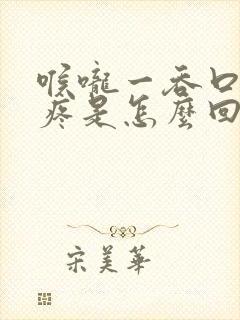 喉嚨一吞口
疼是怎麼回
宋美華